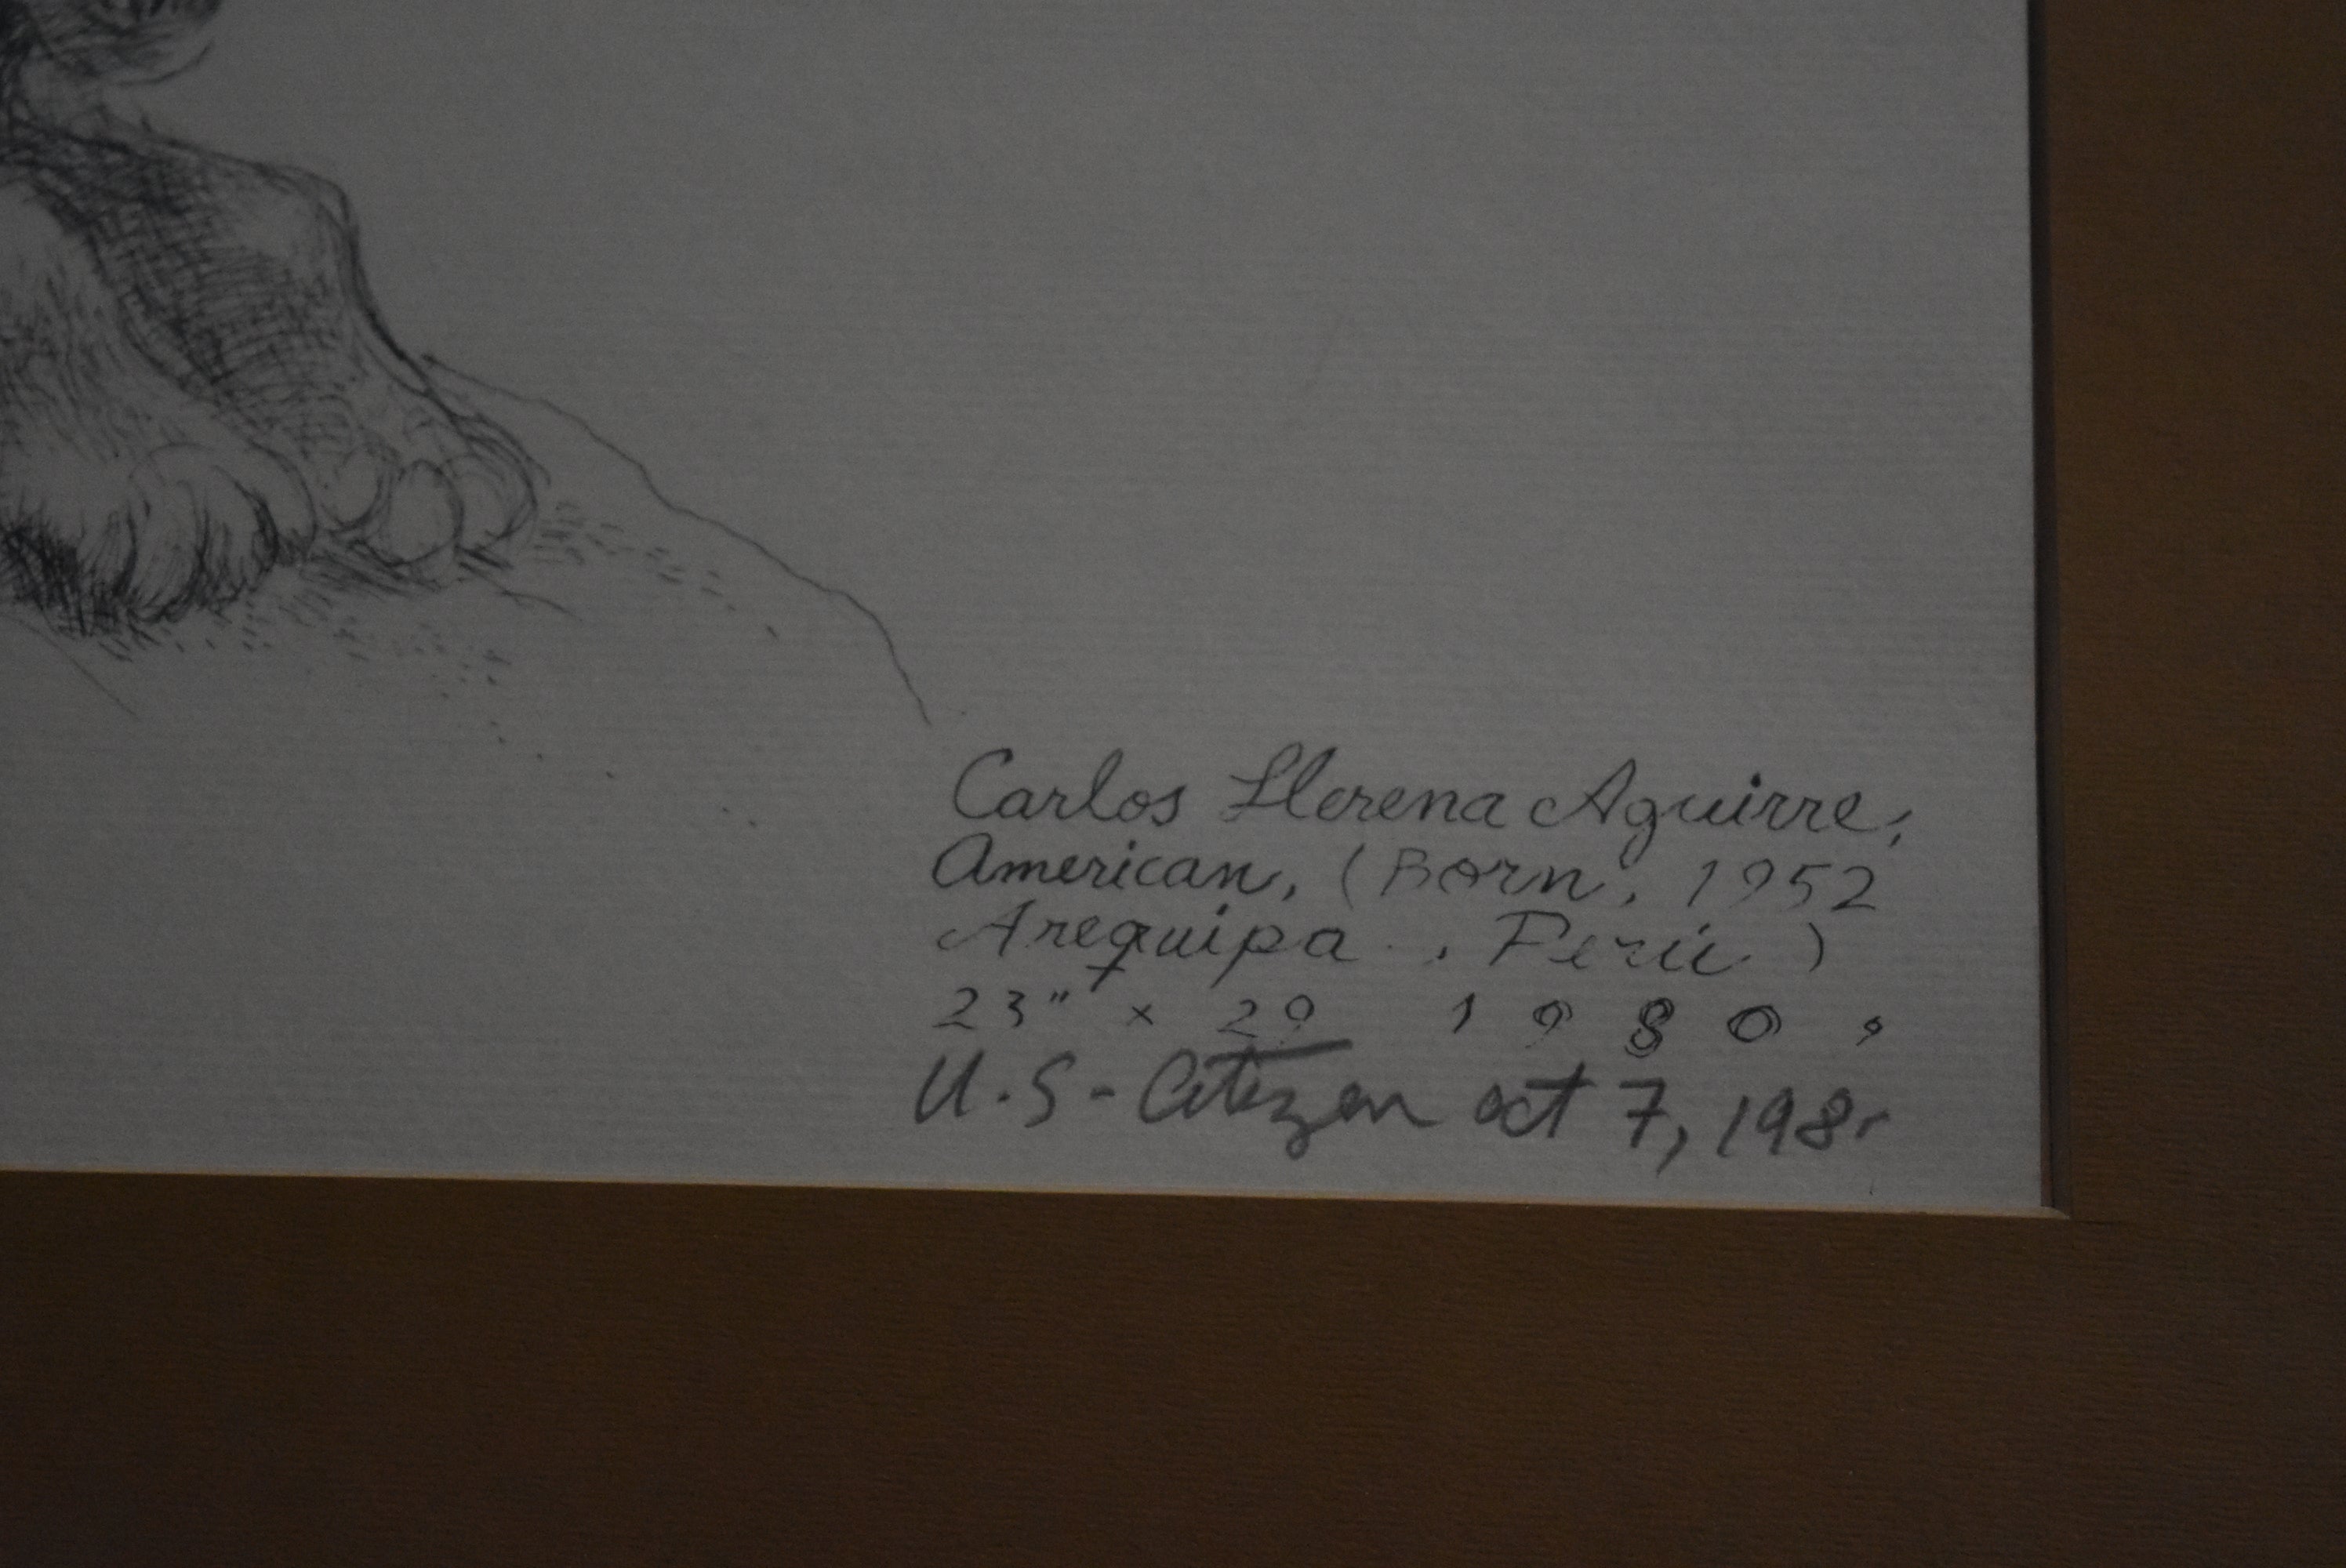 Carlos Llerena Aguirre,
American, (Born, 1952
Arequipa, Perú)
23" x 29 1980.
U.S - Citizen oct 7,